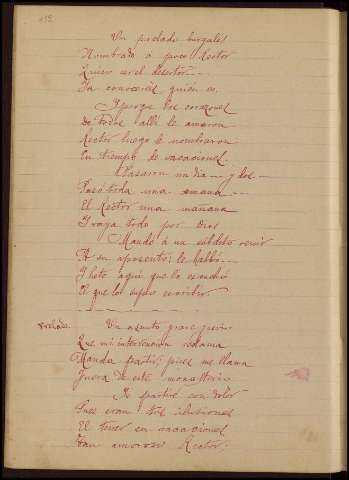 132
Un prelado burgalés
Nombrado ó poco Rector
Quiso ser el desertor...
Ya conoceréis quién es.
Y porque los corazones
De todos allí le amaron
Rector luego le nombraron
En tiempo de vacaciones.
Pasaron un día y dos
Pasó toda una semana
El Rector una mañana
Y vaya todo por Dios
Mandó á un súbdito venir
A su aposento; le habló
Y heto aquí que lo escuchó
El que los supo escribir
Un asunto grave y serio
Que mi intervención reclama
Manda partir; pues me llama
Fuera de este monasterio
He partir con dolor
Pues eran tres ilusiones
El tener en vacaciones
Tan amoroso Rector.